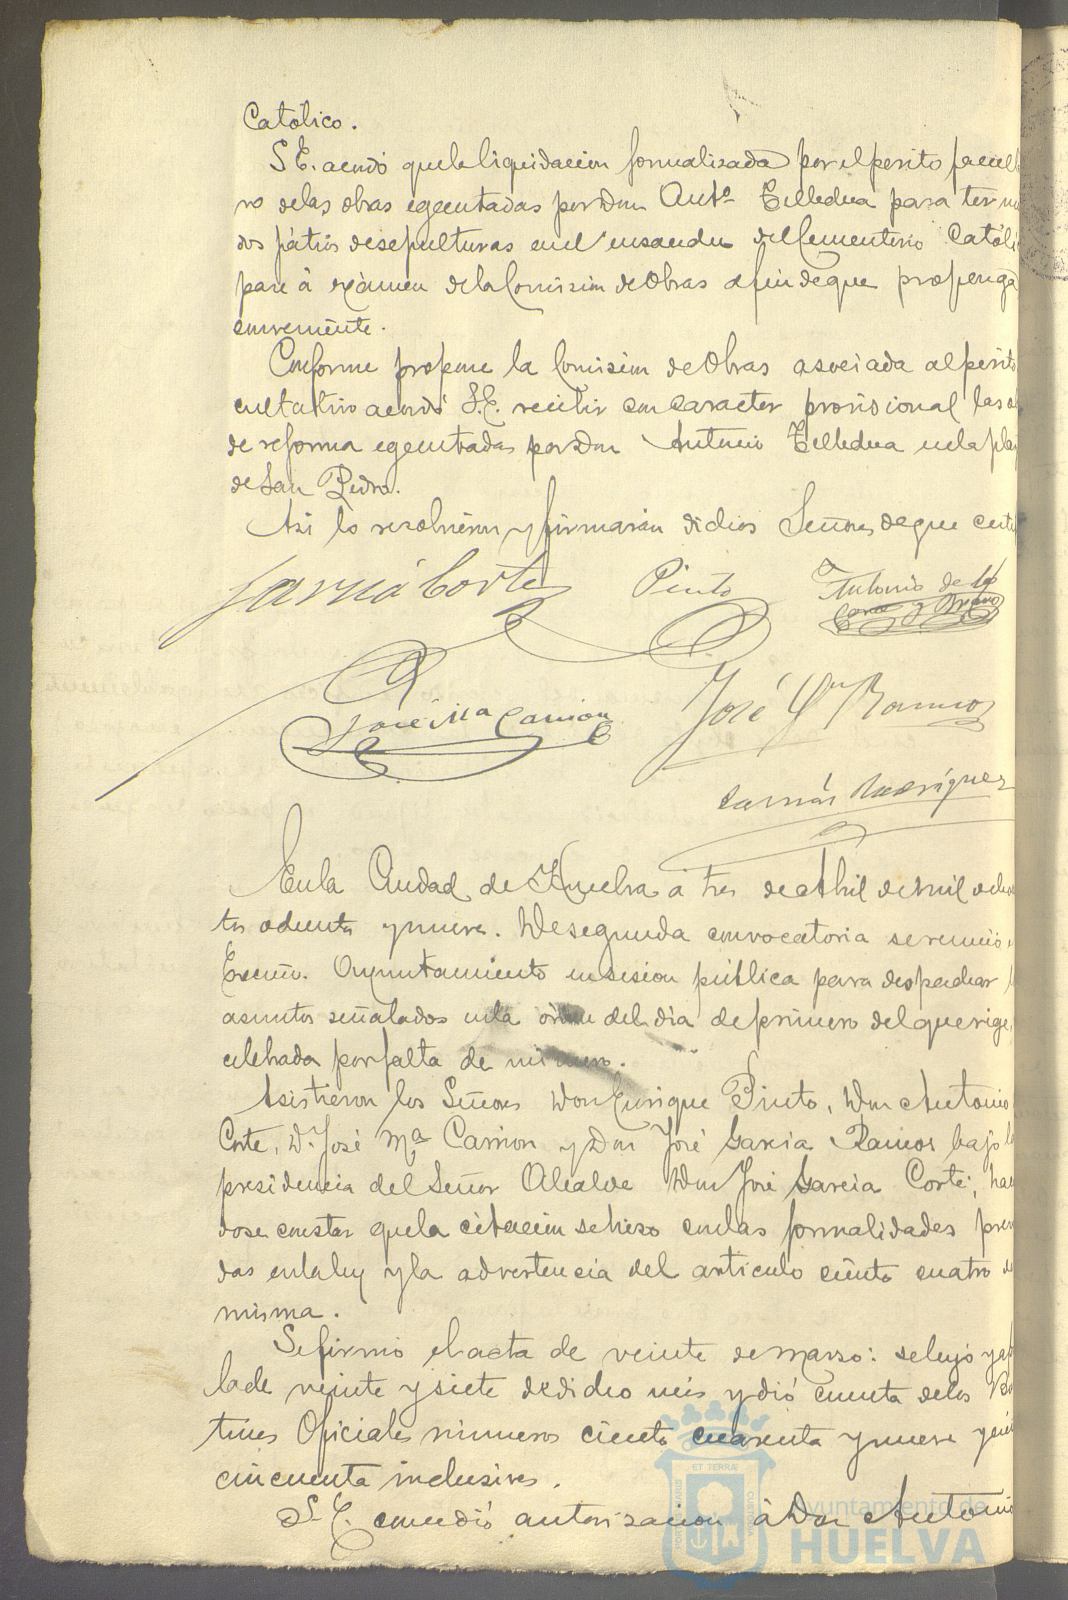 Católico.
S.E. acordó que la liquidacion formalizada por el perito facult
vo de las obras egecutadas por Don Antº Telledua para ter
dos pátios de sepulturas en el ensanche del Cementerio Católi
pase á exámen de la Comision de Obras a fin de que proponga
conveniente.
Conforme propone la Comision de Obras asociada al perito
cultativo acordó S.E. recibir con caracter provisional las o
de reforma egecutadas por Don Antonio Telledua en la pla
de San Pedro.
Asi lo resolvieron y firmarán dichos Señores de que certi
Garcia Corte Pinto Antonio de la
Corte y Bravo
José Mª Carrion José Gª Ramos
Tomás Rodriguez
En la Ciudad de Huelva á tres de Abril de mil ocho
tos ochenta y nueve. De segunda convocatoria se reunió
Excmo. Ayuntamiento en sesion pública para despachar
asuntos señalados en la órden del dia de primero del que rige,
celebrada por falta de número.
Asistieron los Señores Don Enrique Pinto, Don Antonio
Corte, D. José Mª Carrion y Don José Garcia Ramos bajo l
presidencia del Señor Alcalde Don José Garcia Corte, ha
dose constar que la citacion se hizo con las formalidades pre
das en la ley y la advertencia del articulo ciento cuatro d
misma.
Se firmó el acta de veinte de Marzo: se leyó y ap
la de veinte y siete de dicho mes y dió cuenta de los Bo
tines Oficiales números ciento cuarenta y nueve y
cincuenta inclusives.
S.E. concedió autorizacion á Don Antonio
Ayuntamiento de
HUELVA